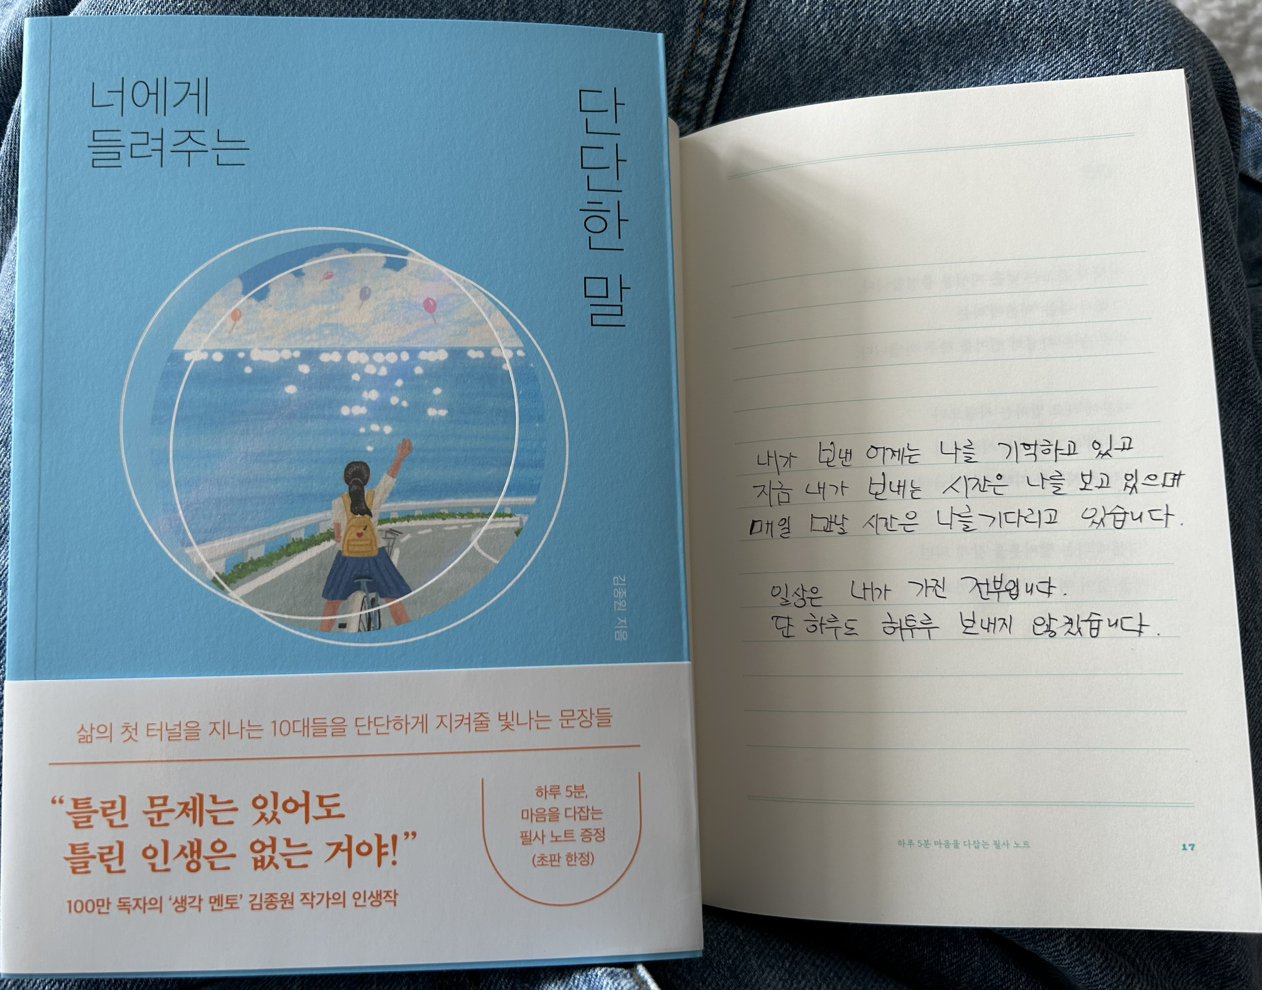 너에게
들려주는
단단한 말
김종원 지음
삶의 첫 터널을 지나는 10대들을 단단하게 지켜줄 빛나는 문장들
“틀린 문제는 있어도
틀린 인생은 없는 거야!”
100만 독자의 ‘생각 멘토’ 김종원 작가의 인생작
하루 5분,
마음을 다잡는
필사 노트 증정
(초판 한정)
내가 보낸 어제는 나를 기억하고 있고
지금 내가 보내는 시간은 나를 보고 있으며
매일 만날 시간은 나를 기다리고 있습니다.
일상은 내가 가진 전부입니다.
단 하루도 허투루 보내지 않겠습니다.
하루 5분 마음을 다잡는 필사 노트
17